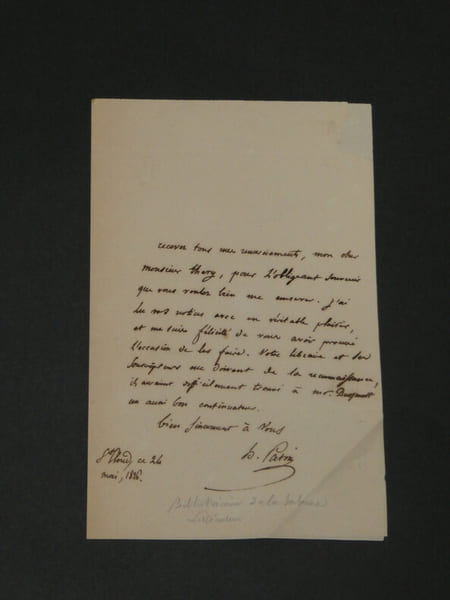 recevez tous mes remerciements, mon cher
monsieur Thery, pour l'obligeant souvenir
que vous voulez bien me conserver. J'ai
lu vos notices avec un véritable plaisir,
et me suis félicité de vous avoir procuré
l'occasion de les faire. Votre libraire et ses
souscripteurs me doivent de la reconnaissance,
ils auraient difficilement trouvé à mr.
un aussi bon continuateur.
bien sincèrement à vous
h. Patin
St Cloud, ce 24
mai,
Bibliothécaire de la